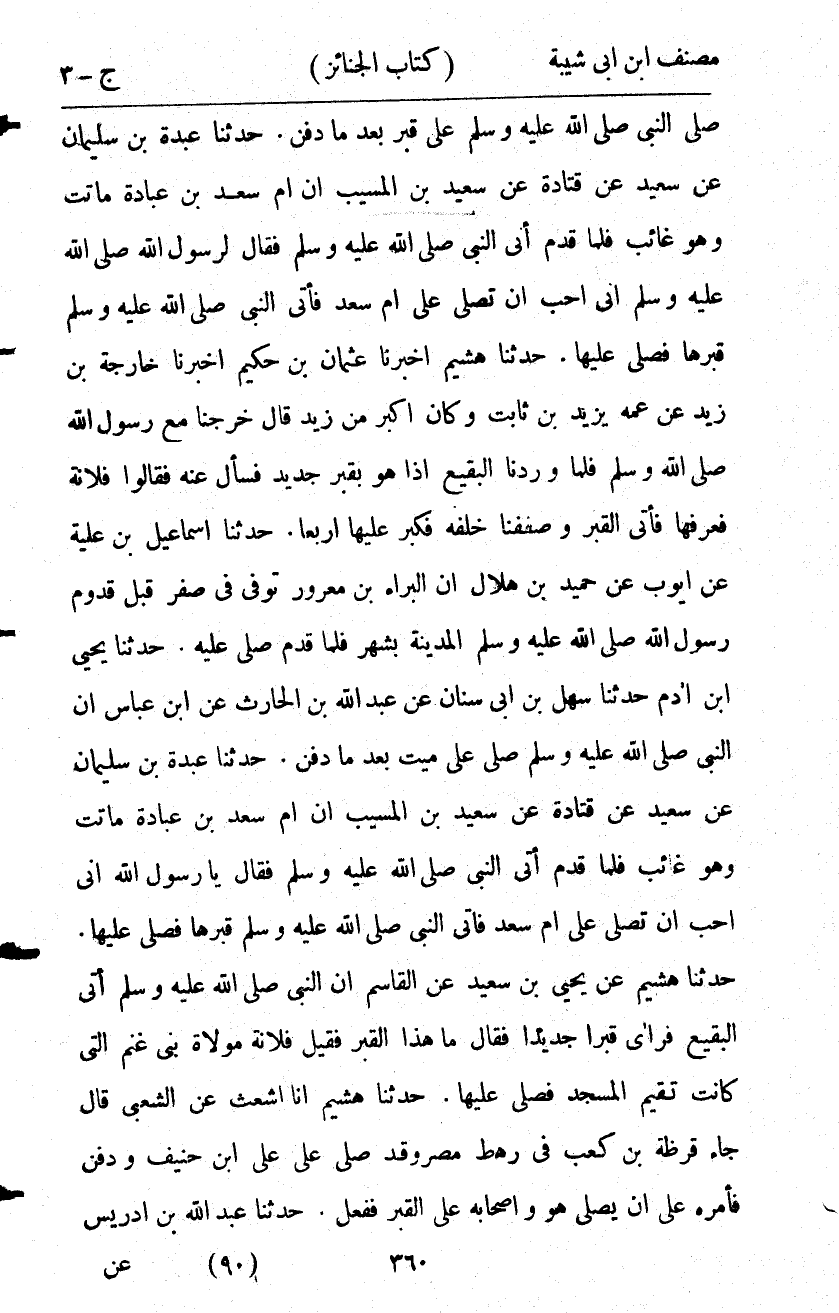 مصنف ابن ابى شيبة (كتاب الجنائز) ج - ٣
صلى النبى صلى الله عليه و سلم على قبر بعد ما دفن . حدثنا عبدة بن سليمان
عن سعيد عن قتادة عن سعيد بن المسيب ان ام سعد بن عبادة ماتت
و هو غائب فلما قدم أتى النبى صلى الله عليه و سلم فقال لرسول الله صلى الله
عليه و سلم انى احب ان تصلى على ام سعد فأتى النبى صلى الله عليه و سلم
قبرها فصلى عليها . حدثنا هشيم اخبرنا عثمان بن حكيم اخبرنا خارجة بن
زيد عن عمه يزيد بن ثابت و كان اكبر من زيد قال خرجنا مع رسول الله
صلى الله و سلم فلما و ردنا البقيع اذا هو بقبر جديد فسأل عنه فقالوا فلانة
فعرفها فأتى القبر و صففنا خلفه فكبر عليها اربعا . حدثنا اسماعيل بن علية
عن ايوب عن حميد بن هلال ان البراء بن معرور توفى فى صفر قبل قدوم
رسول الله صلى الله عليه و سلم المدينة بشهر فلما قدم صلى عليه . حدثنا يحيى
ابن اٰدم حدثنا سهل بن ابى سنان عن عبد الله بن الحارث عن ابن عباس ان
النبى صلى الله عليه و سلم صلى على ميت بعد ما دفن . حدثنا عبدة بن سليمان
عن سعيد عن قتادة عن سعيد بن المسيب ان ام سعد بن عبادة ماتت
وهو غائب فلما قدم أتى النبى صلى الله عليه و سلم فقال يا رسول الله انى
احب ان تصلى على ام سعد فأتى النبى صلى الله عليه و سلم قبرها فصلى عليها .
حدثنا هشيم عن يحيى بن سعيد عن القاسم ان النبى صلى الله عليه و سلم أتى
البقيع فراٰى قبرا جديدا فقال ما هذا القبر فقيل فلانة مولاة بنى غنم التى
كانت تقيم المسجد فصلى عليها . حدثنا هشيم انا اشعث عن الشعبى قال
جاء قرظة بن كعب فى رهط مصروقد صلى على على ابن حنيف و دفن
فأمره على ان يصلى هو و اصحابه على القبر ففعل . حدثنا عبد الله بن ادريس
٣٦٠ (٩٠) عن